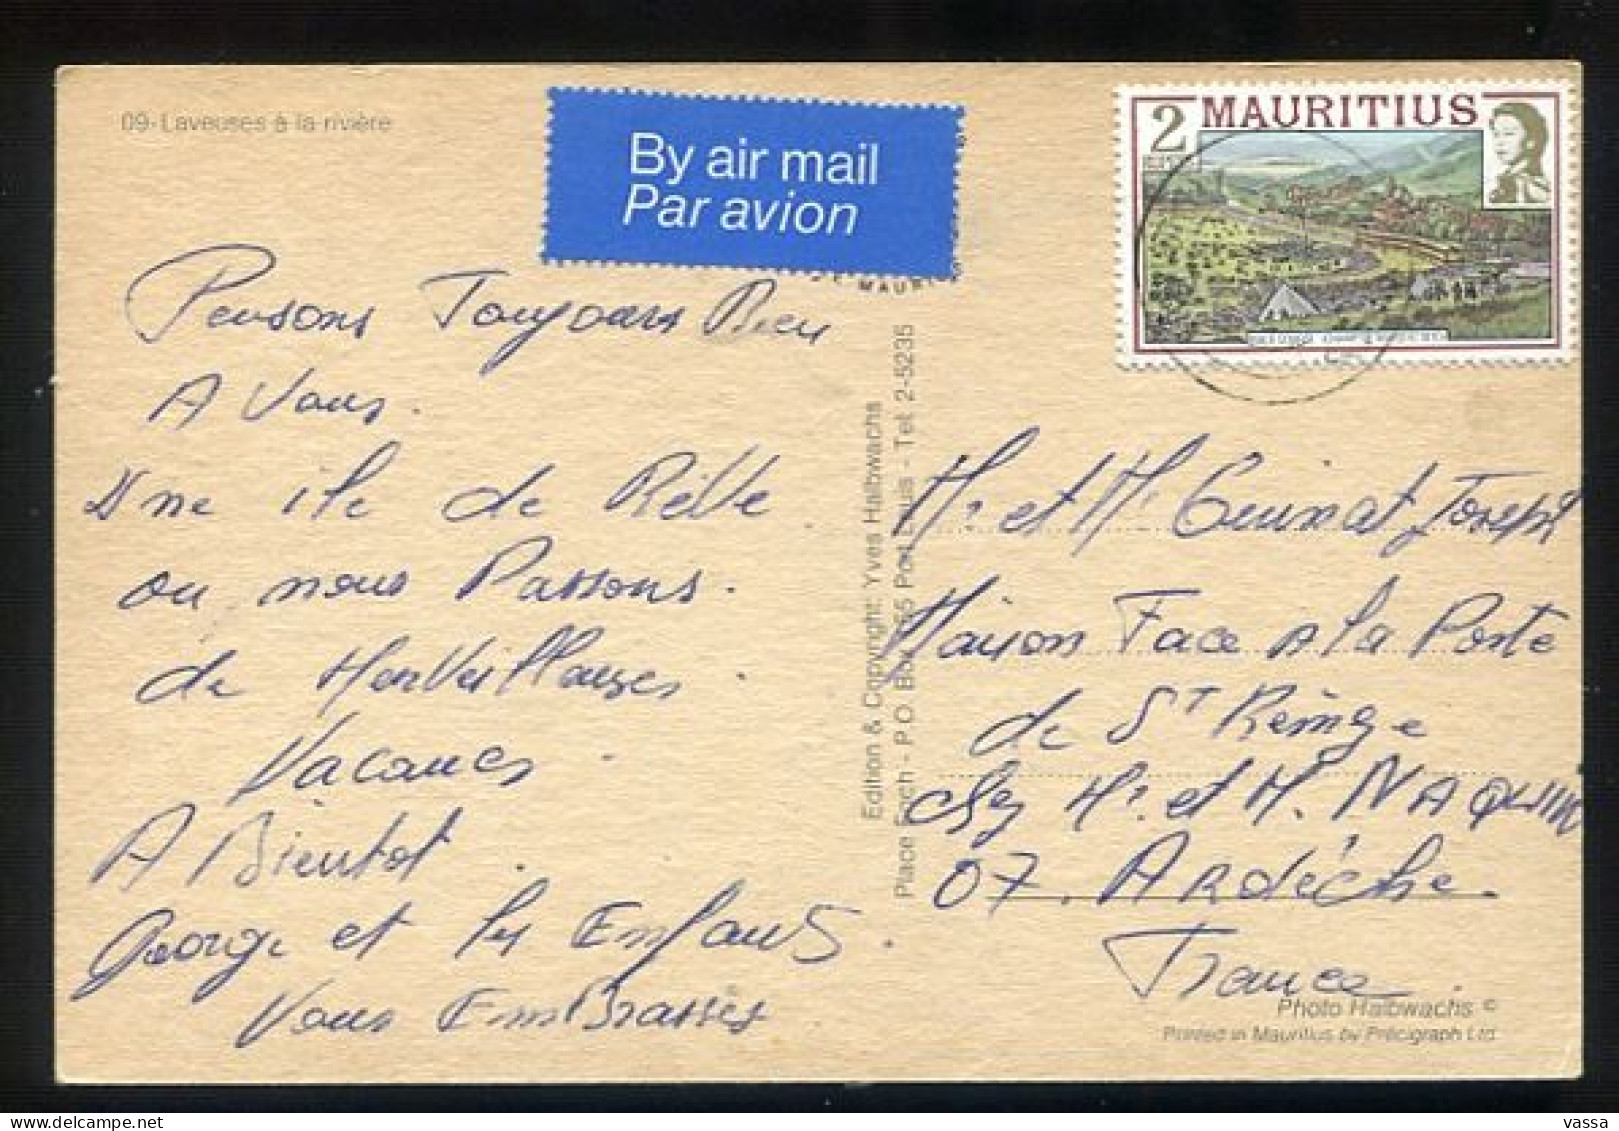 09-Laveuses à la rivière
By air mail
Par avion
MAURITIUS
2
MAURI
Pensons Toujours Bien
A Vous.
Une ile de Rêve
ou nous Passons.
de Merveilleuses.
Vacances.
A Bientot.
George et les Enfants.
Vous EmBrasses
Edition & Copyright: Yves Halbwachs
Place Foch - P.O. Box Port Louis - Tel: 2-5235
Mr et M. Joseph
Maison Face A la Poste
de St Remèze
chez Mr et M. NAQUIN
07. Ardèche.
France.
Photo Halbwachs ©
Printed in Mauritius by Précigraph Ltd.
vassa